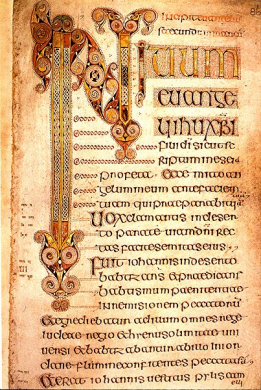 INI
TIUM
euange
lii ihu xpi
fili di sicut sc
riptum in esei
profeta Ecce mitto an
gelum meum ante faciem
tuam qui praeparabit uiam
Uox clamantis in deser
to parate uiam dni rec
tas facite semitas eius
Fuit iohannis in deserto
babtizans et praedicans
babtismum paenitentiae
in remisionem peccatorum
Et egrediebatur ad illum omnes
iudeae regio et hirusolimitae uni
uersi et babtizabantur ab illo in ior
dane flumine confitentes peccata sua
Et erat iohannis uestitus pilis cam